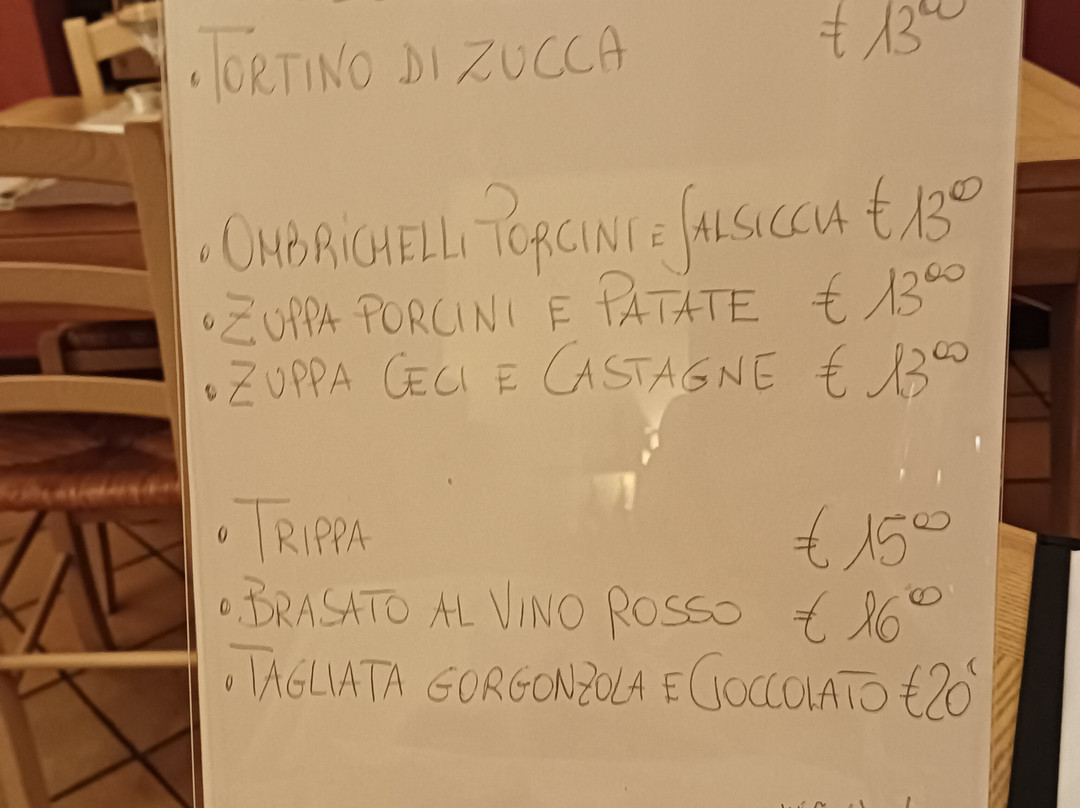 • TORTINO DI ZUCCA € 13⁰⁰
• OMBRICHELLI PORCINI E SALSICCIA € 13⁰⁰
• ZUPPA PORCINI E PATATE € 13⁰⁰
• ZUPPA CECI E CASTAGNE € 13⁰⁰
• TRIPPA € 15⁰⁰
• BRASATO AL VINO ROSSO € 16⁰⁰
• TAGLIATA GORGONZOLA E CIOCCOLATO € 20